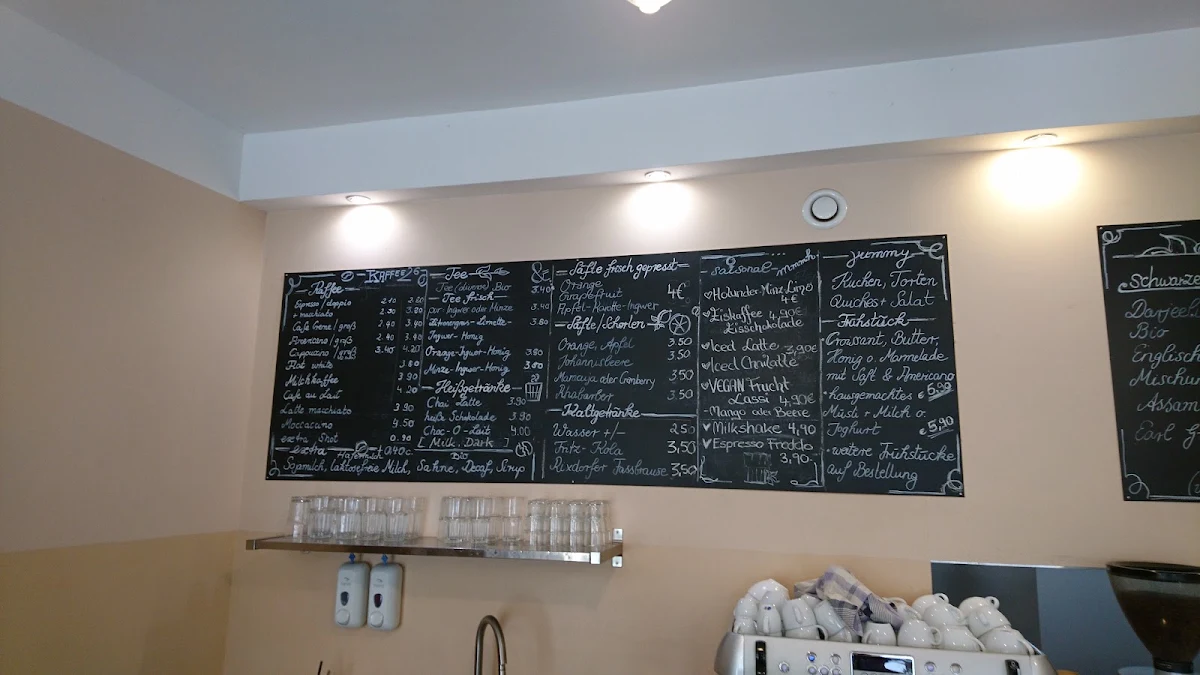 KAFFEE
Kaffee
Espresso / doppio 2.10 3.20
+ macchiato
Café Creme / groß 2.40 3.40
Americano / groß 2.40 3.40
Cappuccino / groß 3.40 4.20
Flat white
Milchkaffee
Café au Lait
Latte macchiato 3.90
Moccacino 4.50
extra Shot 0.90
extra Hafermilch 0,40€
Sojamilch, laktosefreie Milch, Sahne, Decaf, Sirup
Tee
Bio 3.40
Tee frisch
pur-Ingwer oder Minze 3.40
Zitronengras-Limette- 3.80
Ingwer-Honig
Orange-Ingwer-Honig 3.80
Minze-Ingwer-Honig 3.80
Heißgetränke
Chai Latte 3.90
heiße Schokolade 3.90
Choc-O-Lait 4.00
[Milk. Dark]
Bio
&
Säfte frisch gepresst
Orange
Grapefruit 4€
Apfel-Karotte-Ingwer
Säfte/Schorlen
Orange, Apfel 3.50
Johannisbeere 3.50
Maracuja oder Cranberry 3,50
Rhabarber 3.50
Kaltgetränke
Wasser +/- 2.50
Fritz-Kola 3,50
Rixdorfer Fassbrause 3,50
saisonal-mmmmh
Holunder-Minz Limo
4€
Eiskaffee 4,90€
Eisschokolade
Iced Latte 3,90€
Iced Chailatte
VEGAN Frucht
Lassi 4,90€
-Mango oder Beere
Milkshake 4,90
Espresso Freddo
3,90.
yummy
Kuchen, Torten
Quiches + Salat
Frühstück
Croissant, Butter,
Honig o. Marmelade
mit Saft & Americano
€ 5,90
hausgemachtes
Müsli + Milch o.
Joghurt € 5,90
• weitere Frühstücke
auf Bestellung
Schwarz
Darjeel
Bio
Englisch
Mischu
Assam
Earl G